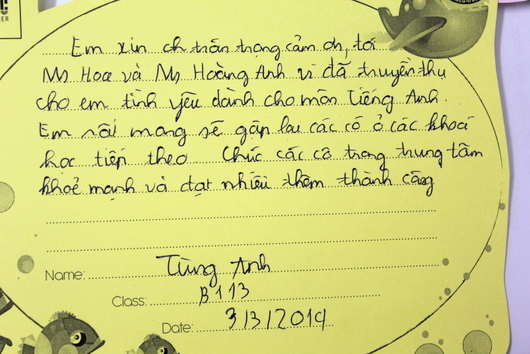 Em xin ch trân trọng cảm ơn, tới
Ms Hoa và Ms Hoàng Anh vì đã truyền thụ
cho em tình yêu dành cho môn Tiếng Anh.
Em rất mong sẽ gặp lại các cô ở các khoá
học tiếp theo Chúc các cô trong trung tâm
khoẻ mạnh và đạt nhiều thêm thành công
Name: Tùng Anh
Class: B113
Date: 3/3/2014